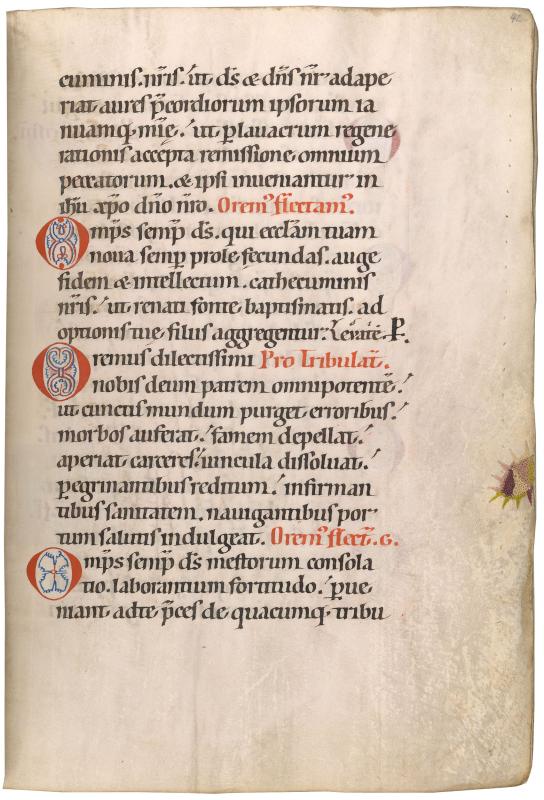 42
cuminis. nr̄is. ut ds̄ & dn̄s nr̄ adape
riat aures p̄cordiorum ipsorum ia
nuamq; mīe. ut p̱ lauacrum regene
rationis accepta remissione omnium
peccatorum. & ipsi inueniantur in
ihū xp̄o dn̄o nr̄o. Orem'. flectam'.
Omp̄s semp̱ ds̄. qui eccl̄am tuam
noua semp̱ prole fecundas. auge
fidem & intellectum. cathecuminis
nr̄is. ut renati fonte baptismatis. ad
optionis tue filiis aggregentur. Leuate. P̱.
Oremus dilectissimi Pro Tribulat̄.
nobis deum patrem omnipotentē.
ut cunctis mundum purget erroribus.
morbos auferat. famem depellat.
aperiat carceres. uincula dissoluat.
p̱egrinantibus reditum. infirman
tibus sanitatem. nauigantibus por
tum salutis indulgeat. Orem'. flect̄. G.
Omp̄s semp̱ ds̄ mestorum consola
tio. laborantium fortitudo. p̱ue
niant ad te p̄ces de quacumq; tribu